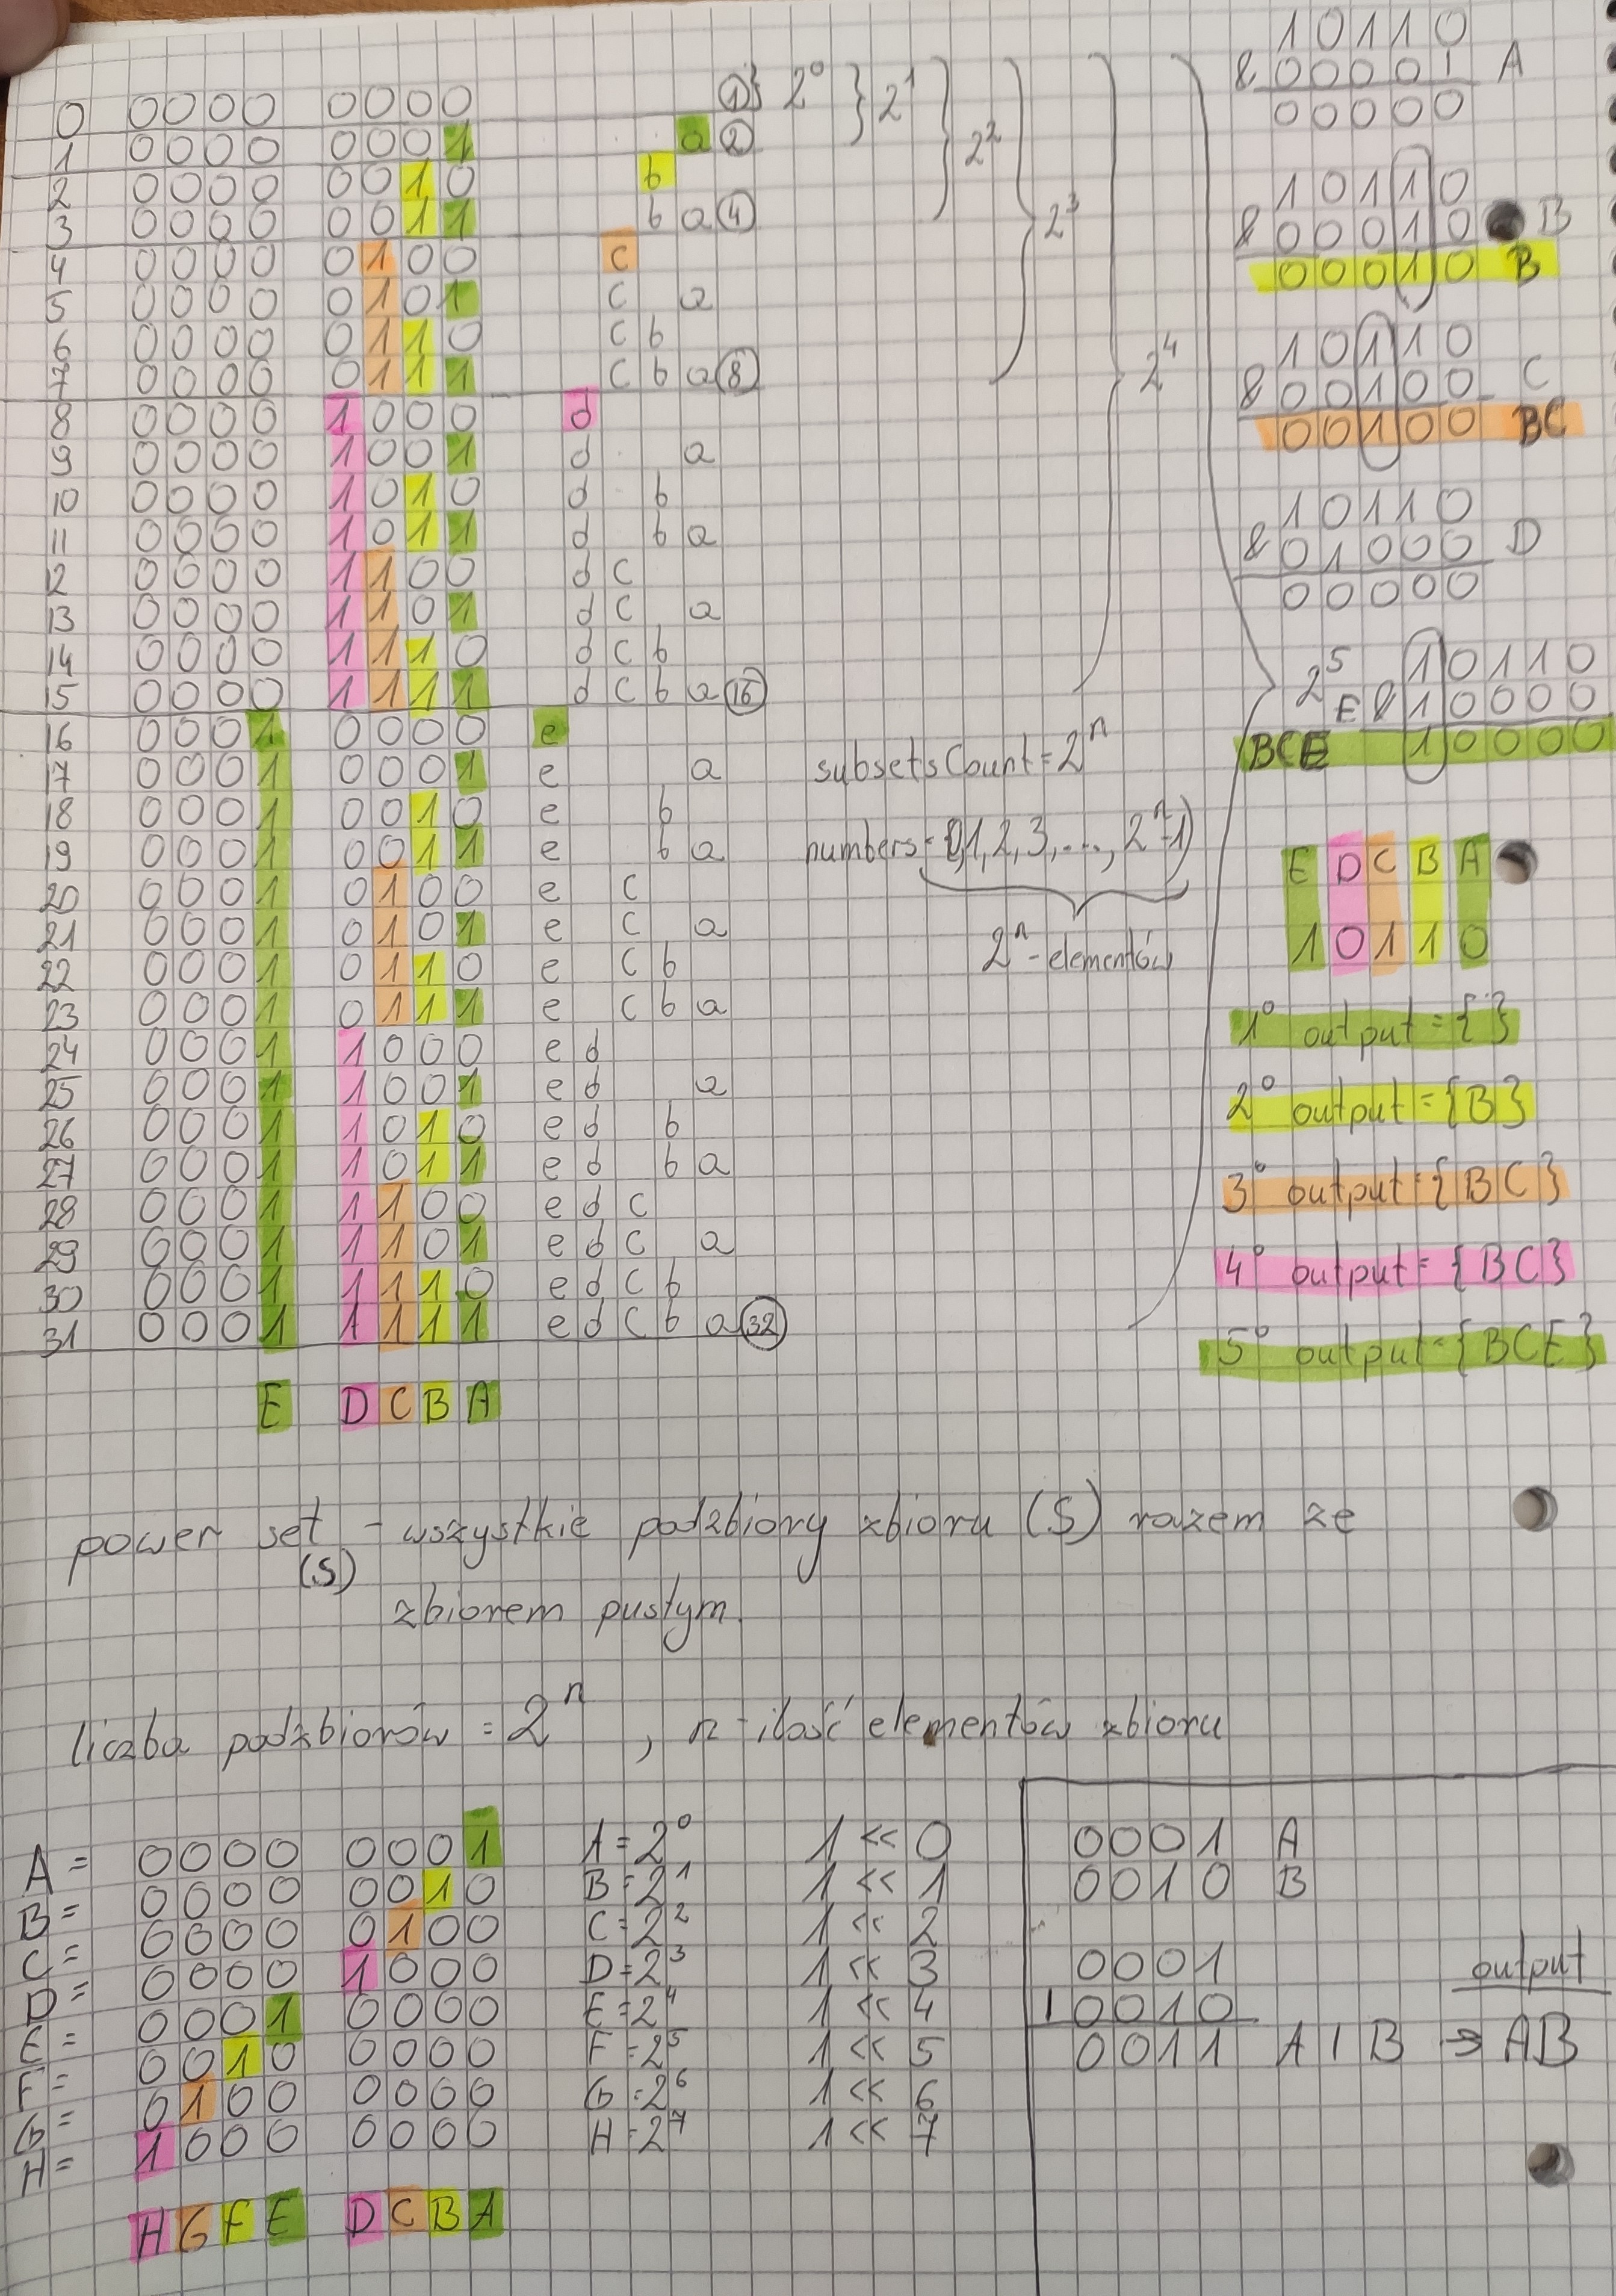 0 0000 0000 ① } 2⁰ } 2¹
1 0000 0001 a ②
2 0000 0010 b } 2²
3 0000 0011 b a ④ } 2³
4 0000 0100 c
5 0000 0101 c a
6 0000 0110 c b
7 0000 0111 c b a ⑧ } 2⁴
8 0000 1000 d
9 0000 1001 d a
10 0000 1010 d b
11 0000 1011 d b a
12 0000 1100 d c
13 0000 1101 d c a
14 0000 1110 d c b
15 0000 1111 d c b a ⑯ } 2⁵
16 0001 0000 e
17 0001 0001 e a
18 0001 0010 e b
19 0001 0011 e b a
20 0001 0100 e c
21 0001 0101 e c a
22 0001 0110 e c b
23 0001 0111 e c b a
24 0001 1000 e d
25 0001 1001 e d a
26 0001 1010 e d b
27 0001 1011 e d b a
28 0001 1100 e d c
29 0001 1101 e d c a
30 0001 1110 e d c b
31 0001 1111 e d c b a ㉜
E D C B A
subsetsCount = 2ⁿ
numbers = 0,1,2,3,...., 2ⁿ-1)
2ⁿ - elementów
10110
& 00001 A
00000
10110
& 00010 B
00010 B
10110
& 00100 C
00100 BC
10110
& 01000 D
00000
10110
E & 10000
BCE 10000
E D C B A
1 0 1 1 0
1° output = { }
2° output = {B}
3° output = {BC}
4° output = {BC}
5° output = {BCE}
power set - wszystkie podzbiory zbioru (S) razem ze
(S)
zbiorem pustym.
liczba podzbiorów = 2ⁿ , n - ilość elementów zbioru
A = 0000 0001 A = 2⁰ 1 << 0
B = 0000 0010 B = 2¹ 1 << 1
C = 0000 0100 C = 2² 1 << 2
D = 0000 1000 D = 2³ 1 << 3
E = 0001 0000 E = 2⁴ 1 << 4
F = 0010 0000 F = 2⁵ 1 << 5
G = 0100 0000 G = 2⁶ 1 << 6
H = 1000 0000 H = 2⁷ 1 << 7
H G F E D C B A
0001 A
0010 B
0001
| 0010
output
0011 A | B → AB